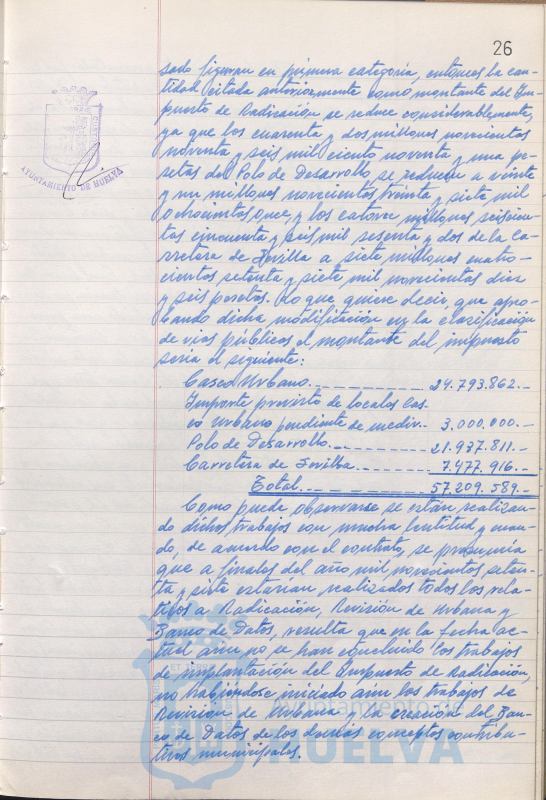 26
sado figuran en primera categoría, entonces la can-
tidad citada anteriormente como montante del Im-
puesto de Radicación se reduce considerablemente,
ya que los cuarenta y dos millones novecientas
noventa y seis mil ciento noventa y una pe-
setas del Polo de Desarrollo, se reducen a veinte
y un millones novecientas treinta y siete mil
ochocientas once, y los catorce millones seiscien-
tas cincuenta y seis mil sesenta y dos de la Ca-
rretera de Sevilla a siete millones cuatro-
cientas setenta y siete mil novecientas diez
y seis pesetas. Lo que quiere decir, que apro-
bando dicha modificación en la clasificación
de vías públicas el montante del impuesto
sería el siguiente:
Casco Urbano. 24.793.862.-
Importe previsto de locales Cas-
co Urbano pendiente de medir.. 3.000.000.-
Polo de Desarrollo. 21.937.811.-
Carretera de Sevilla. 7.477.916.-
Total. 57.209.589.-
Como puede observarse se están realizan-
do dichos trabajos con mucha lentitud y cuan-
do, de acuerdo con el contrato, se presumía
que a finales del año mil novecientos seten-
ta y siete estarían realizados todos los rela-
tivos a Radicación, Revisión de Urbana y
Banco de Datos, resulta que en la fecha ac-
tual aún no se han concluido los trabajos
de implantación del Impuesto de Radicación,
no habiéndose iniciado aún los trabajos de
Revisión de Urbana y la creación del Ban-
co de Datos de los demás conceptos contribu-
tivos municipales.
AYUNTAMIENTO DE HUELVA
Ayuntamiento de
HUELVA